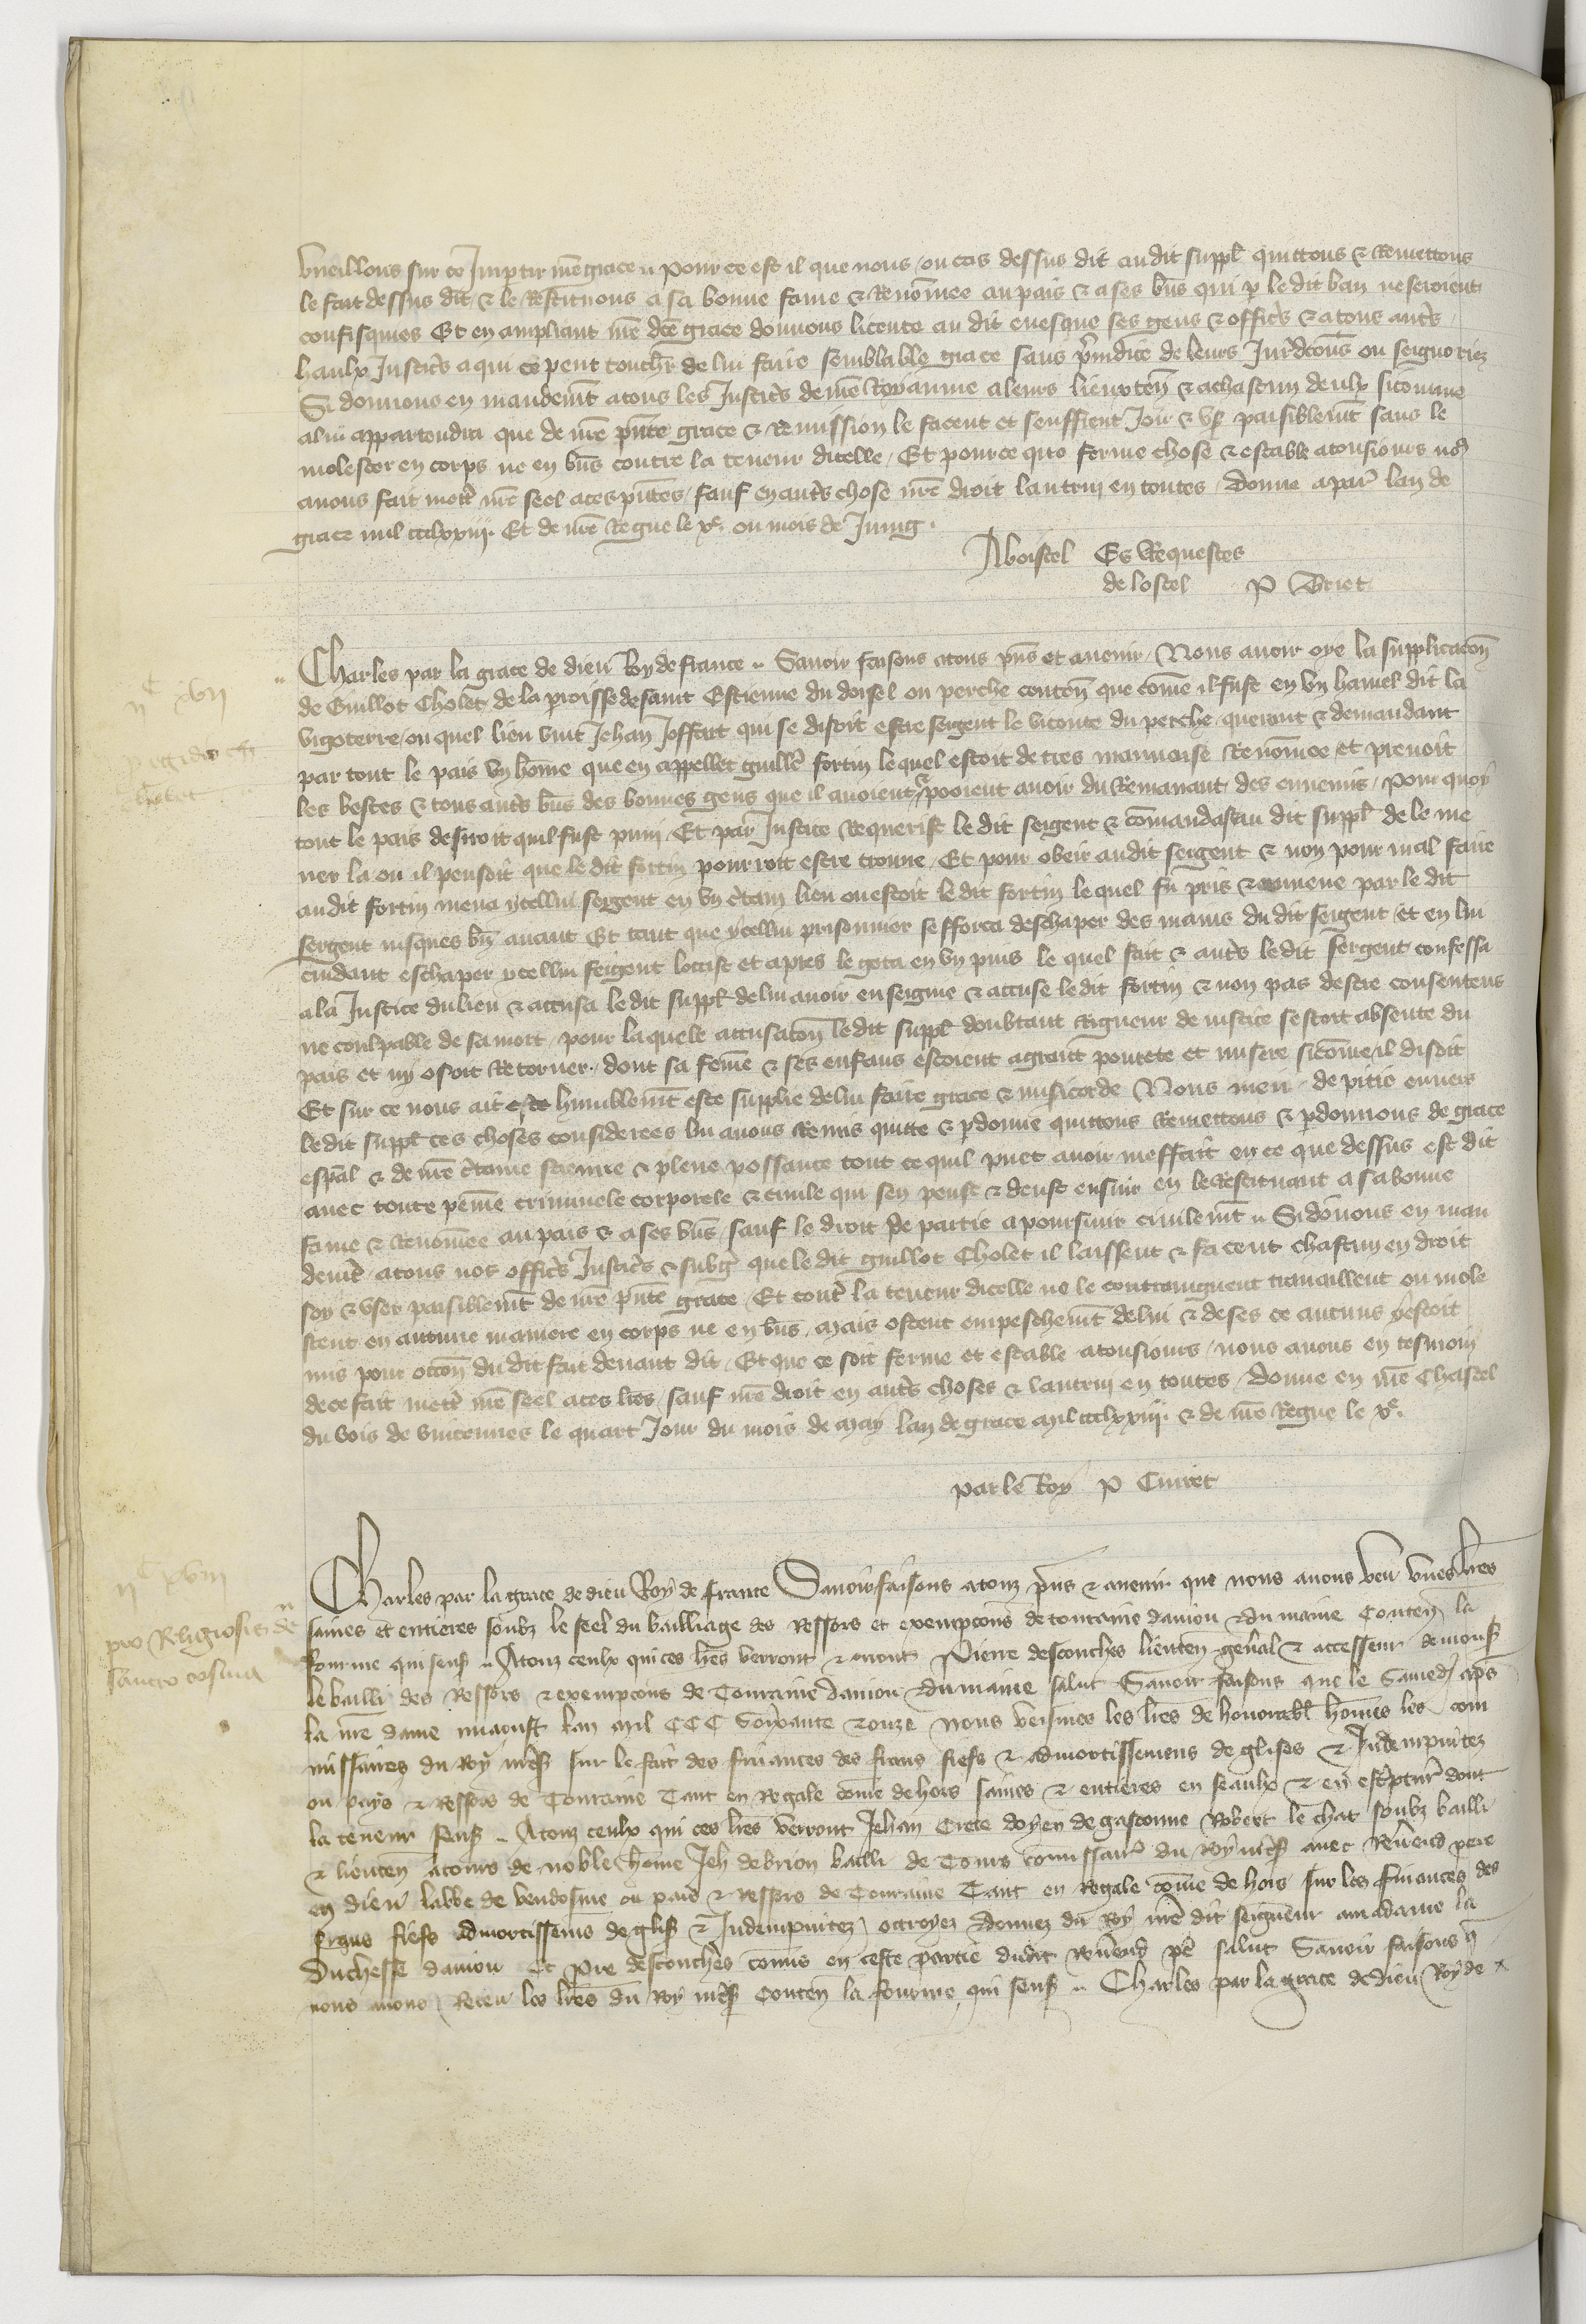 vueillons sur ce Impartir nre grace Pour ce est il que nous ou cas dessus dit au dit suppl quittons & Remettons
le fait dessus dit & le Restituons a sa bonne fame & Renommee au pais & a ses bns qui p le dit ban ne seroient
confisques Et en ampliant nre dce grace donnons licence au dit euesque ses gens & offic's & a tous aut's
haulx Justic's a qui ce peut touch'r de lui faire semblable grace sans p'iudice de leurs Jur'dicons ou seignoriez
Si donnons en mandemt a tous les Justic's de nre Royaume a leurs lieuxten & a chascun deulx sicomme
a lui appartendra que de nre pnte grace & Remission le facent et seuffrent Joir & vs' paisiblemt sans le
molester en corps ne en bns contre la teneur dicelle Et pource que ferme chose & estable a tousiours no'
auons fait mett' nre seel a ces pntes sauf en aut's chose nre droit lautrui en toutes Donne a par' lan de
grace mil ccclxxiij. Et de nre Regne le xe. ou mois de Juing.
Es Requestes
de lostel P Briet
nc xvii
Charles par la grace de dieu Roy de france Sauoir faisons a tous pns et auenir Nous auoir oye la supplicacon
de Guillot Cholet de la proisse de saint Estienne du ou perche conten que come il fust en vn hamel dit la
vigoterre ou quel lieu vint Jehan Joffart qui se disoit estre sergent le viconte du perche querant & demandant
par tout le pais vn home que en appellet guill'e fortin le quel estoit de tres mauuaise Renomee et prenoit
les bestes & tous aut's bns des bonnes gens que il auoient & pooient auoir du Remanant des ennemis Pour quoy
tout le pais desiroit quil fust puni Et par Justice Requerist le dit sergent & comandast au dit suppl de le me
ner la ou il pensoit que le dit fortin pourroit estre trouue Et pour obeir au dit sergent & non pour mal faire
au dit fortin mena ycellui sergent en vn c'tain lieu ou estoit le dit fortin le quel fu pris & emmene par le dit
sergent iusques bn auant Et tant que ycellui prisonnier sefforca deschaper des mains du dit sergent Et en lui
cuidant eschaper ycellui sergent loccist et apres le geta en vn puis le quel fait & aut's le dit sergent confessa
a la Justice du lieu & accusa le dit suppl de lui auoir enseigne & accuse le dit fortin & non pas destre consentens
ne coulpable de sa mort pour la quele accusacon le dit suppl doubtant Rigueur de iustice sestoit absente du
pais et ny osoit Retorner. dont sa feme & ses enfans estoient a grant pourete et misere sicome il disoit
Et sur ce nous ait este humblemt este supplie de lui faire grace & misicorde Nous meu de pitie enuers
le dit suppl ces choses considerees lui auons Remis quitte & pdonne quittons Remettons & pdonnons de grace
espal & de nre c'taine science & plene possance tout ce quil puet auoir meffait en ce que dessus est dit
auec toute peine criminele corporele & ciuile qui sen peust & deust ensuir en le Restituant a sa bonne
fame & Renomee au pais & a ses bns sauf le droit de partie a poursuir ciuilemt Si donnons en man
demt a tous nos offic's Justic's & subg' que le dit guillot Cholet il laissent & facent chascun en droit
soy & vser paisiblemt de nre pnte grace Et cont' la teneur dicelle ne le contraignent trauaillent ou mole
stent en aucune maniere en corps ne en bns mais ostent empeschemt de lui & de ses ce aucuns y estoit
mis pour occon du dit fait deuant dit Et que ce soit ferme et estable a tousiours nous auons en tesmoin
de ce fait mett' nre seel a ces lres sauf nre droit en aut's choses & lautrui en toutes Donne en nre Chastel
du bois de vincennes le quart Jour du mois de may lan de grace mil ccclxxiij. & de nre Regne le xe.
par le Roy P Cuiret
nc xviii
pro Religiosis de
sancto cosma
Charles par la grace de dieu Roy de france Sauoir faisons a touz pns & auenir que nous auons veu vnes lres
saines et entieres soubz le seel du bailliage des Ressors et exempcons de touraine daniou & du maine Conten la
fourme qui sens' Atouz ceulx qui ces lres verront & orront Pierre desconches lieuten gen'al & accesseur de mons'
le bailli des Ressors & exempcons de Touraine daniou & du maine salut Sauoir faisons que le Samedj aps
la nre dame miaoust lan mil CCC soixante & onze nous veismes les lres de honorabl homes les com
missaires du Roy nres' sur le fait des finances des frans fiefs & admortissemens deglises & Indempnitez
ou pays & Ressors de Touraine Tant en Regale come dehors saines & entieres en seaulx & en esc'ptur' dont
la teneur sens' Atouz ceulx qui ces lres verront Jehan Crete doyen de gascoune Robert le chat soubz bailli
& lieuten a tours de noble home Jeh de brion bailli de Tours comissair' du Roy nres' auec Reu'end pere
en dieu labbe de vendosme ou pais & Ressors de Touraine Tant en Regale come dehors sur les finances des
frans fiefs admortissems deglis' & Indempnitez octroyez donnez du Roy nre dit seigneur a madame la
Duchesse daniou Et pre desconches comis en ceste partie dudit Reu'end pe' salut Sauoir faisons q
nous auons Receu les lres du Roy nres' conten la fourme qui sens' Charles par la grace de dieu Roy de